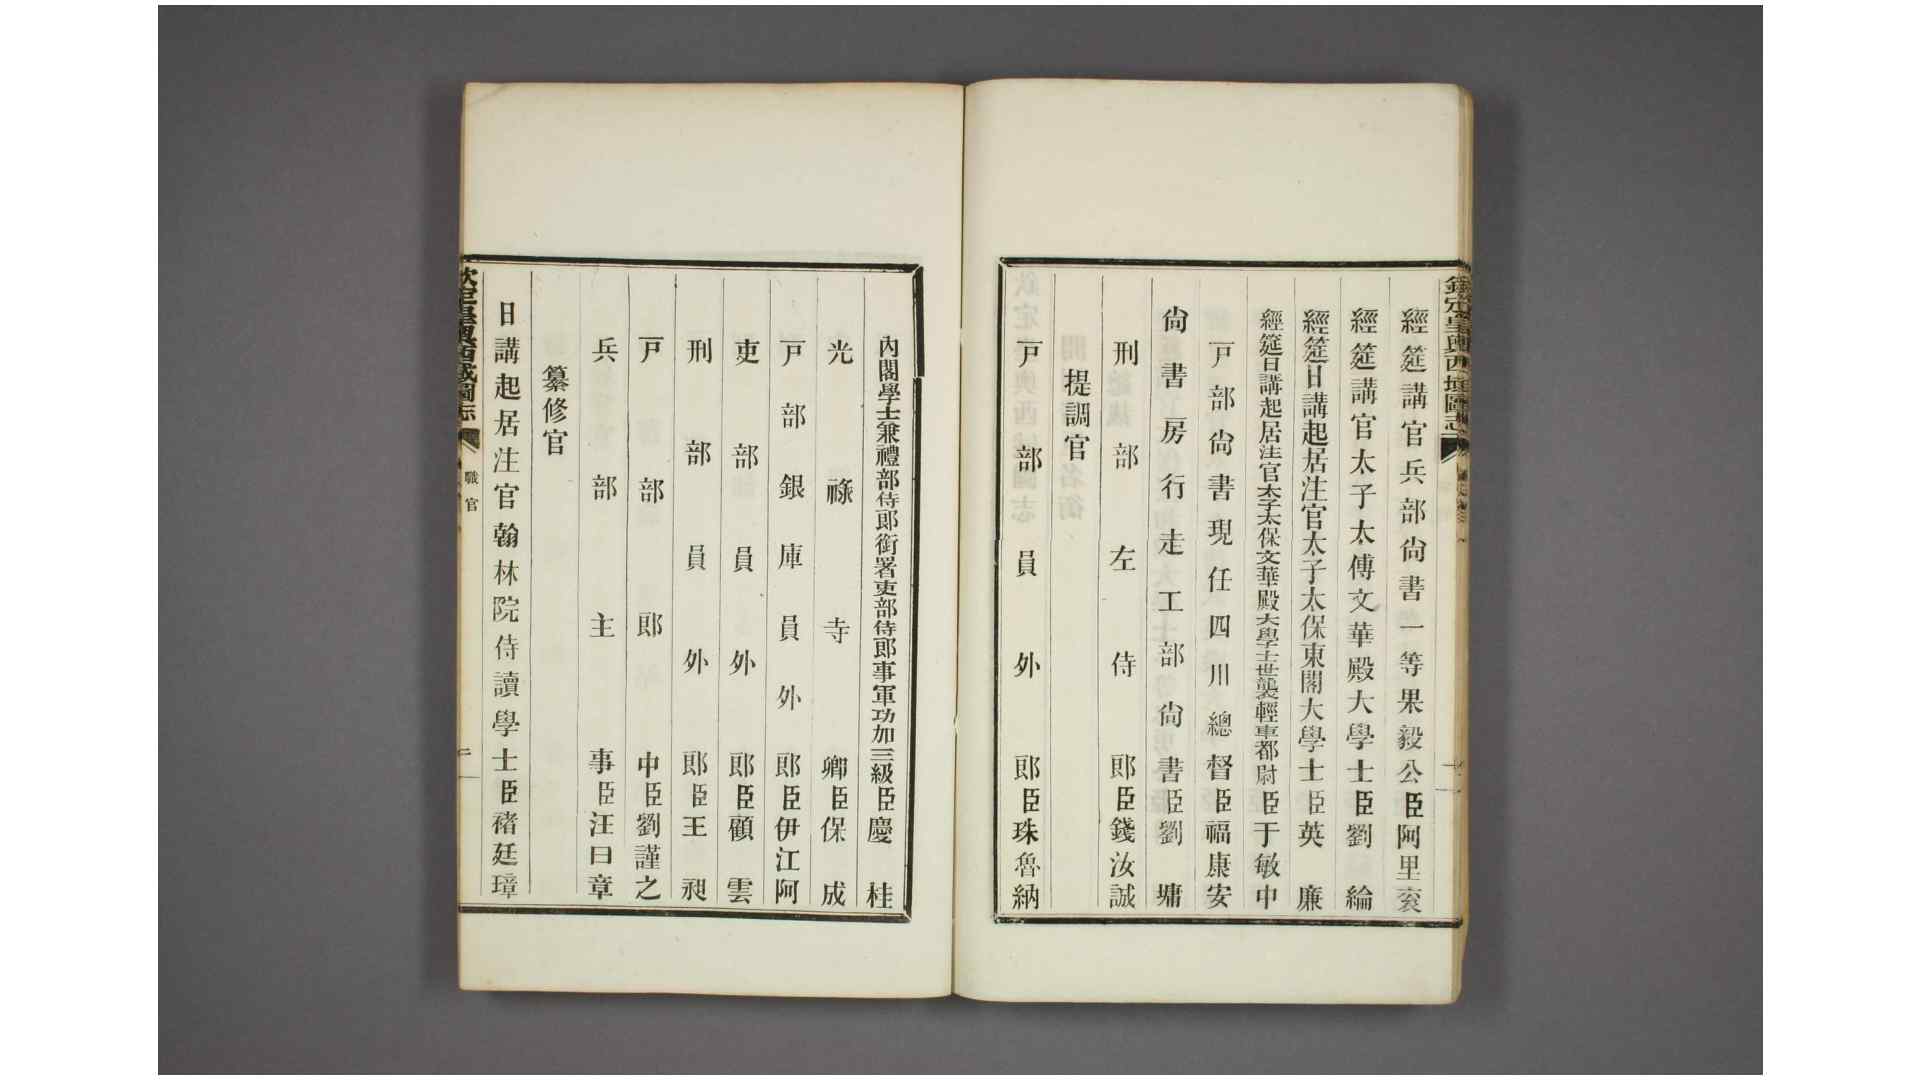 經筵講官兵部尙書一等果毅公臣阿里衮
經筵講官太子太傅文華殿大學士臣劉綸
經筵日講起居注官太子太保東閣大學士臣英廉
經筵日講起居注官太子太保文華殿大學士世襲輕車都尉臣于敏中
戸部尙書現任四川總督臣福康安
尙書房行走工部尙書臣劉墉
刑部左侍郞臣錢汝誠
提調官
戸部員外郞臣珠魯納
內閣學士兼禮部侍郞銜署吏部侍郞事軍功加三級臣慶桂
光祿寺卿臣保成
戸部銀庫員外郞臣伊江阿
吏部員外郞臣顧雲
刑部員外郞臣王昶
戸部郞中臣劉謹之
兵部主事臣汪日章
纂修官
日講起居注官翰林院侍讀學士臣褚廷璋
欽定皇輿西域圖志
職官
二